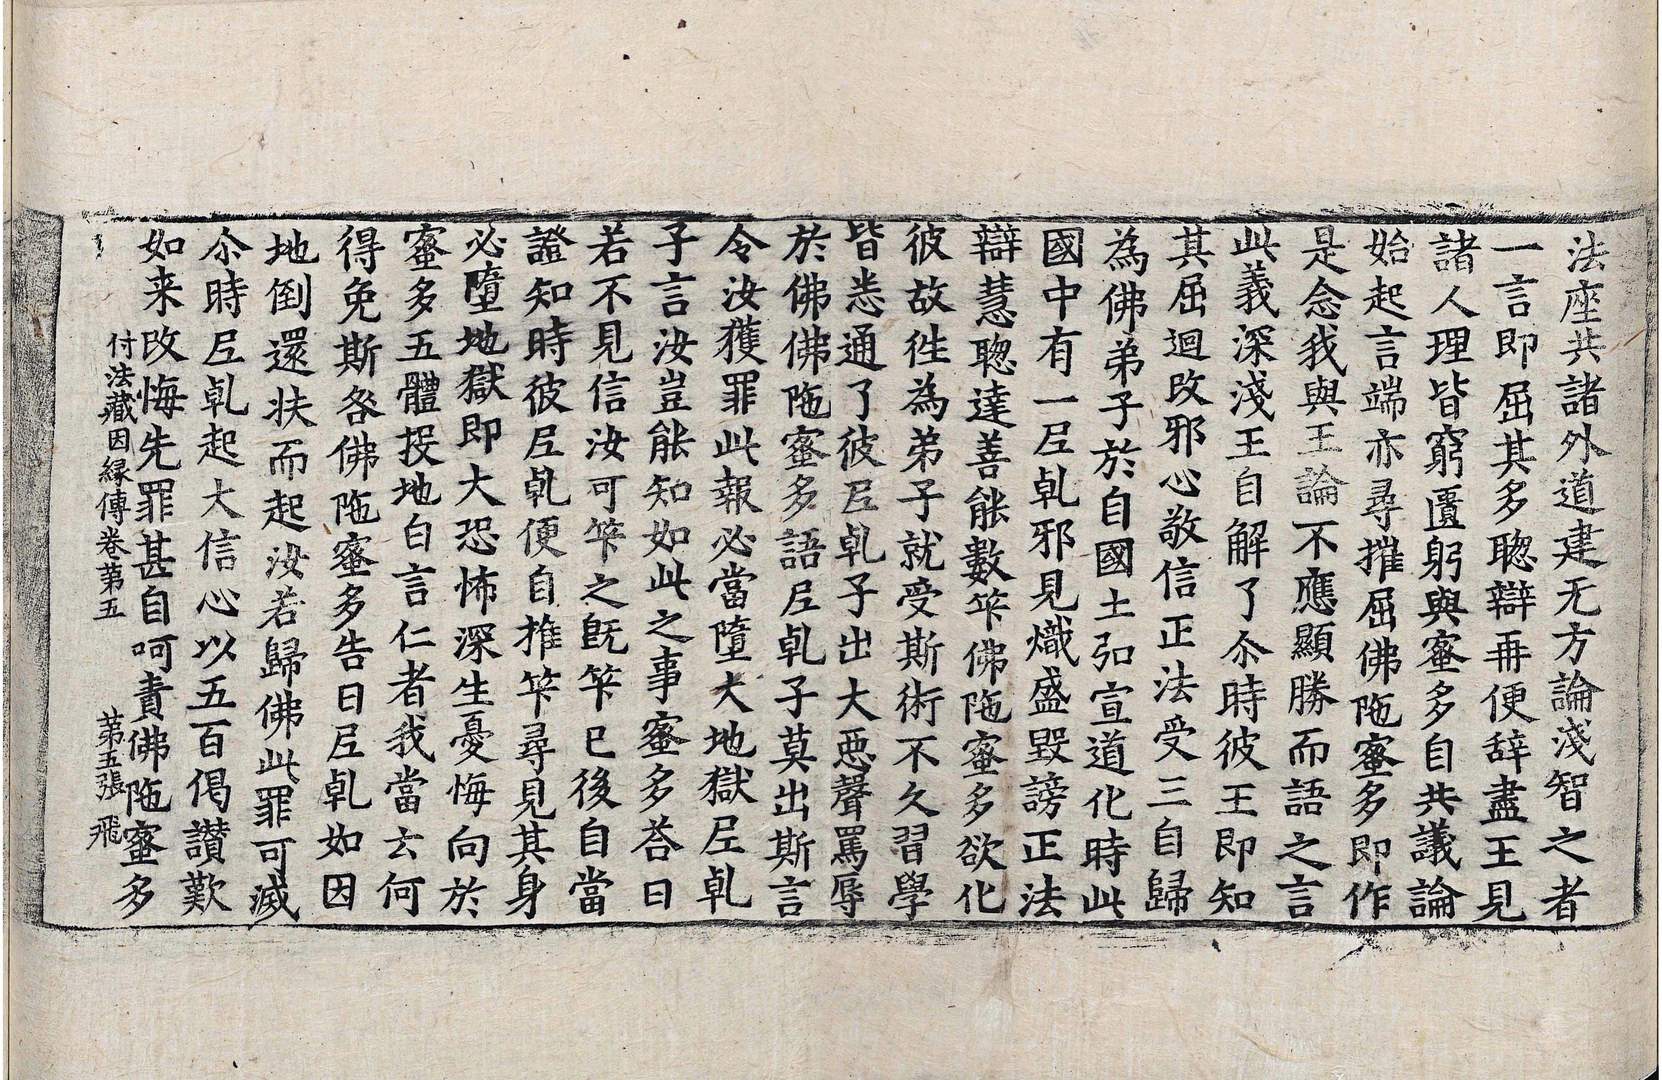 法座共諸外道建无方論淺智之者
一言即屈其多聦辯再便辞盡王見
諸人理皆窮匱躬與蜜多自共議論
始起言端亦尋摧屈佛陁蜜多即作
是念我與王論不應顯勝而語之言
此義深淺王自解了尒時彼王即知
其屈迴改邪心敬信正法受三自歸
為佛弟子於自國土弘宣道化時此
國中有一尼乹邪見熾盛毀謗正法
辯慧聦達善能數筭佛陁蜜多欲化
彼故徃為弟子就受斯術不久習學
皆悉通了彼尼乹子出大惡聲罵辱
於佛佛陁蜜多語尼乹子莫出斯言
令汝獲罪此報必當墮大地獄尼乹
子言汝豈能知如此之事蜜多荅曰
若不見信汝可筭之旣筭已後自當
證知時彼尼乹便自推筭尋見其身
必墮地獄即大恐怖深生憂悔向於
蜜多五體投地白言仁者我當云何
得免斯咎佛陁蜜多告曰尼乹如因
地倒還扶而起汝若歸佛此罪可滅
尒時尼乹起大信心以五百偈讃歎
如来改悔先罪甚自呵責佛陁蜜多
付法藏因緣傳卷苐五 苐五張 飛